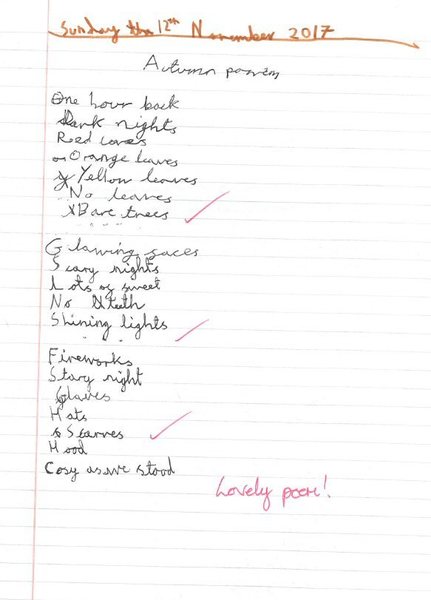 Sunday the 12th November 2017
Autumn poem
One hour back
Dark nights
Reed leaves
Orange leaves
Yellow leaves
No leaves
Bare trees
Glawing faces
Scary nights
Lots of sweet
No teeth
Shining lights
Fireworks
Stary night
Glaves
Hats
Scarves
Hood
Cosy as we stood
Lovely poem!